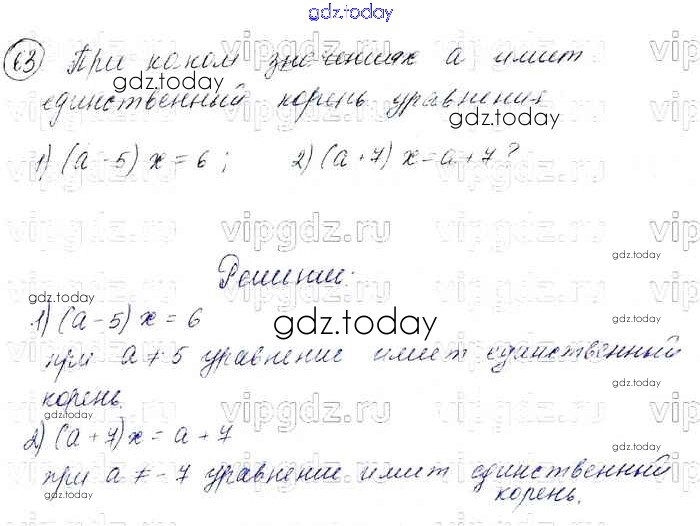 gdz.today
63 При каком значениях а имеет
gdz.today
единственный корень уравнения
gdz.today
1) (a - 5) x = 6 ; 2) (a + 7) x = a + 7 ?
vipgdz.ru vipgdz.ru
gdz.today
Решение:
gdz.today
1) (a - 5) x = 6
gdz.today
при a ≠ 5 уравнение имеет единственный
gdz.today
корень.
vipgdz.ru vipgdz.ru
2) (a + 7) x = a + 7
gdz.today
при a ≠ - 7 уравнение имеет единственный
gdz.today
корень.